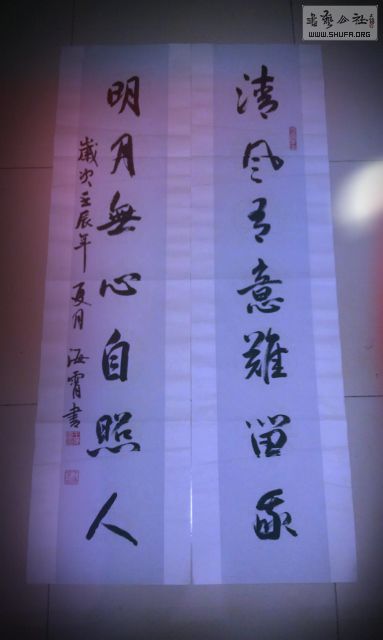 清风有意难留我
明月無心自照人
歲次壬辰年夏月海霄書
書藝公社
WWW.SHUFA.ORG